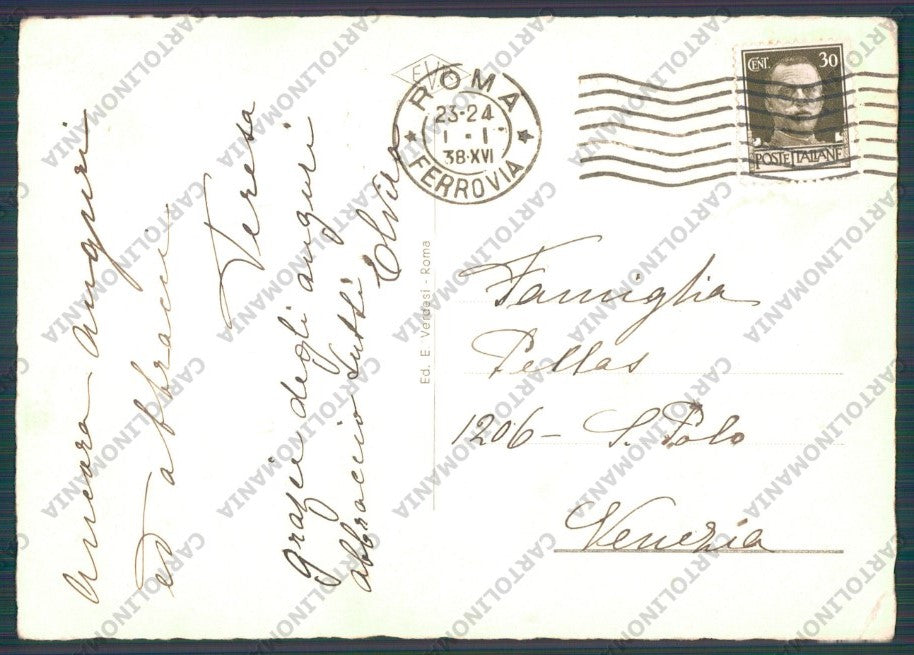 Ancora auguri
ed abbracci
Teresa
Grazie degli auguri
abbraccio tutti
Elvira
Ed. E. Verdesi - Roma
EVR
ROMA
23-24
1-1
38.XVI
FERROVIA
CENT. 30
POSTE ITALIANE
Famiglia
Pellas
1206 - S. Polo
Venezia
CARTOLINOMANIA